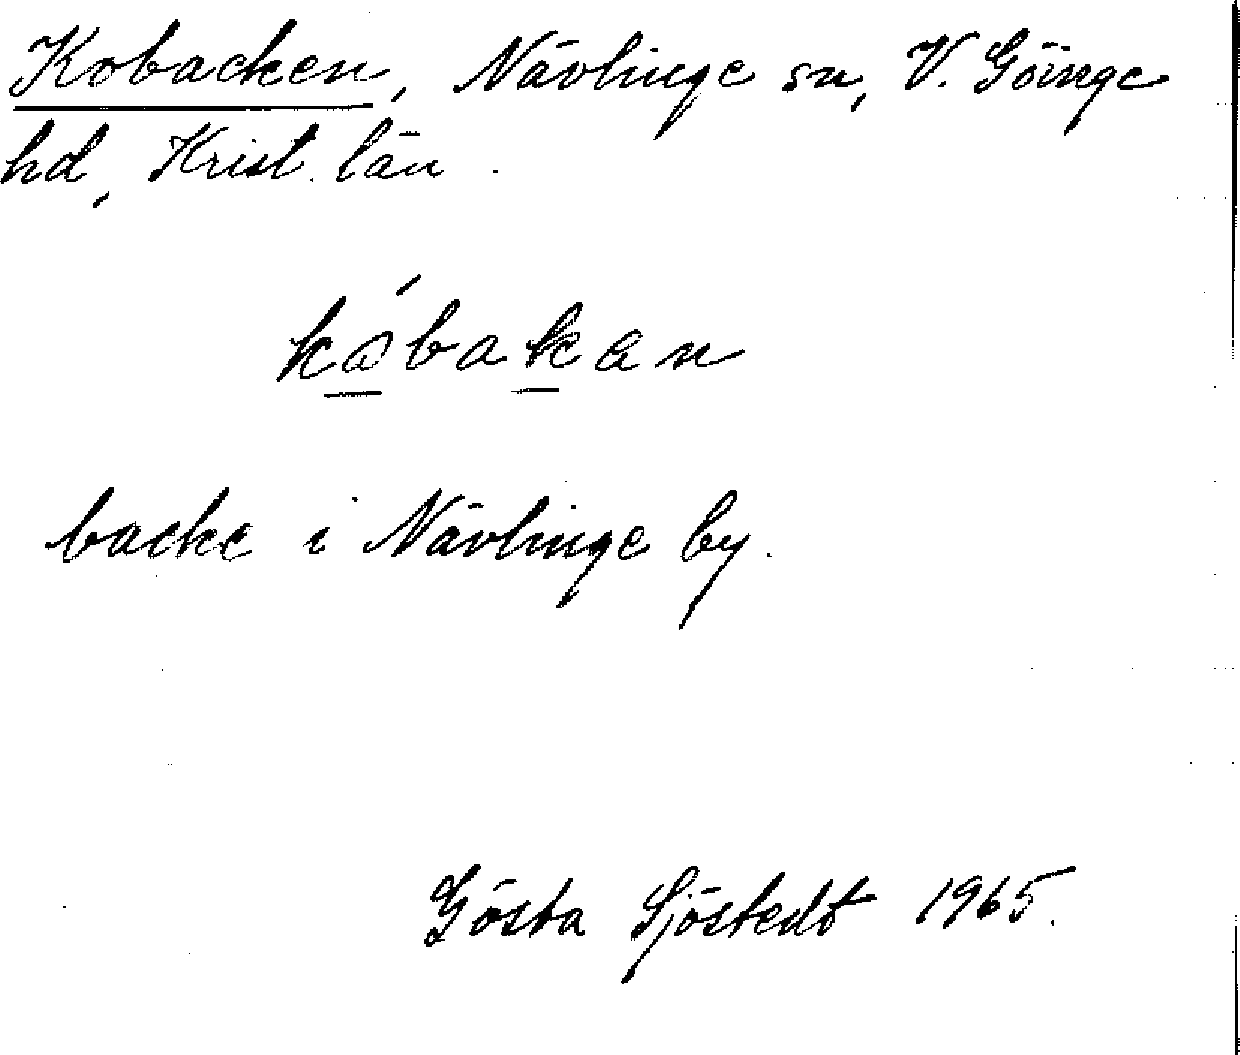 Kobacken, Nävlinge sn, V. Göinge
hd, Krist. län.
kǿbakan
backe i Nävlinge by.
Gösta Sjöstedt 1965.